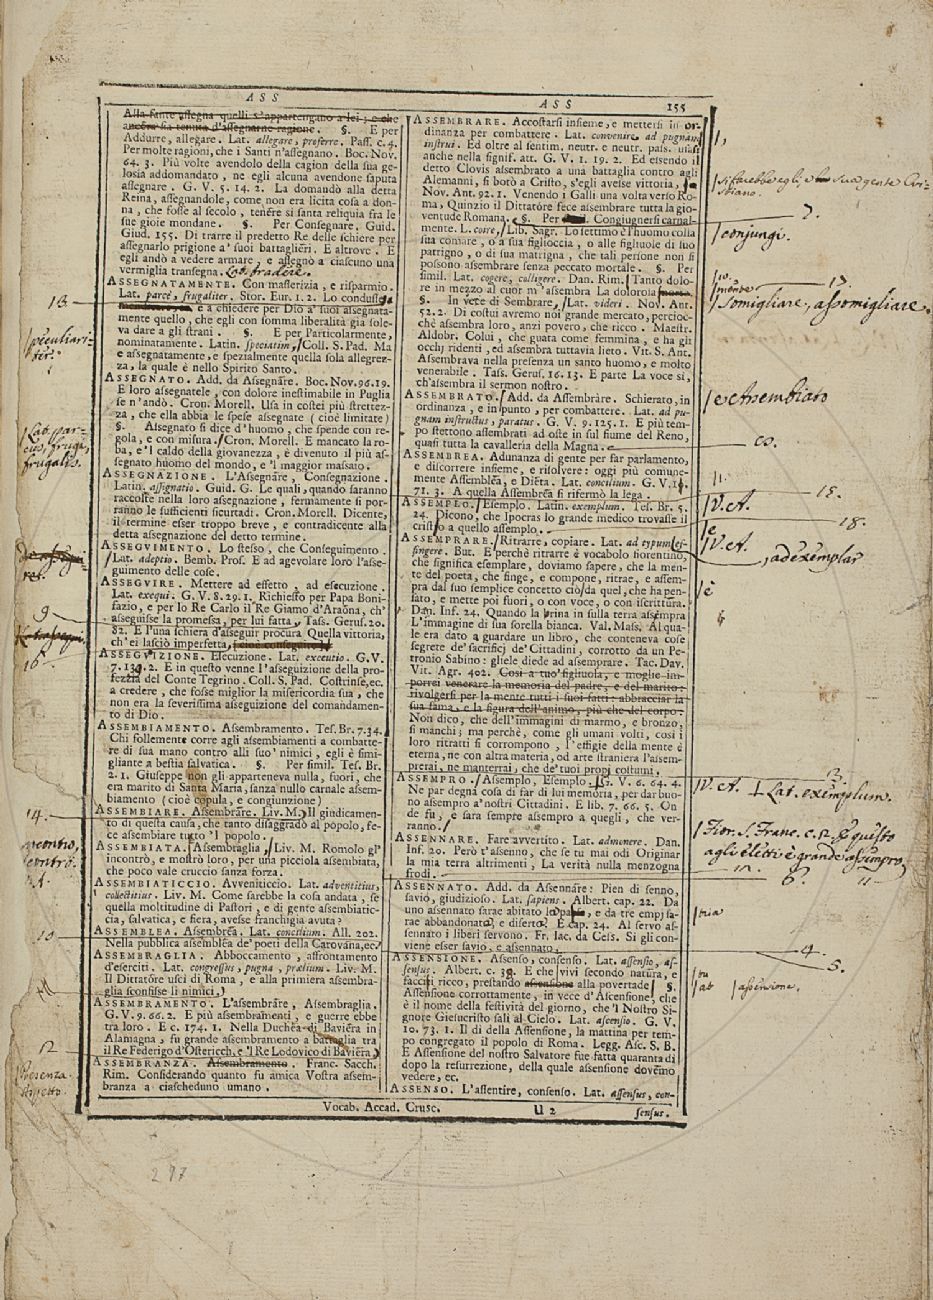 ASS
ASS
155
Alla fante assegna quelli s'appartengano a lei, e che
ancora sia tenuta d'assegnarne ragione. §. E per
Addurre, allegare. Lat. allegare, proferre. Pass. c. 4.
Per molte ragioni, che i Santi n'assegnano. Boc. Nov.
64. 3. Più volte avendolo della cagion della sua ge-
losia addomandato, ne egli alcuna avendone saputa
assegnare. G. V. 5. 14. 2. La domandò alla detta
Reina, assegnandole, come non era licita cosa a don-
na, che fosse al secolo, tenére si santa reliquia fra le
sue gioie mondane. §. Per Consegnare. Guid.
Giud. 155. Di trarre il predetto Re delle schiere per
assegnarlo prigione a' suoi battaglièri. E altrove. E
egli andò a vedere armare, e assegnò a ciascuno una
vermiglia transegna. Lat. tradere.
ASSEGNATAMENTE. Con masserizia, e risparmio.
Lat. parcè, frugaliter. Stor. Eur. 1. 2. Lo condusse
e a chiedere per Dio a' suoi assegnata-
mente quello, che egli con somma liberalità già sole-
va dare a gli strani. §. E per Particolarmente,
nominatamente. Latin. speciatim, Coll. S. Pad. Ma
e assegnatamente, e spezialmente quella sola allegrez-
za, la quale è nello Spirito Santo.
ASSEGNATO. Add. da Assegnàre. Boc. Nov. 96. 19.
E loro assegnatele, con dolore inestimabile in Puglia
se n'andò. Cron. Morell. Usa in costei più strettez-
za, che ella abbia le spese assegnate (cioè limitate)
§. Assegnato si dice d'huomo, che spende con re-
gola, e con misura. Cron. Morell. E mancato la ro-
ba, e 'l caldo della giovanezza, è divenuto il più as-
segnato huomo del mondo, e 'l maggior massaio.
ASSEGNAZIONE. L'Assegnàre, Consegnazione.
Latin. assignatio. Guid. G. Le quali, quando saranno
raccolte nella loro assegnazione, fermamente si por-
ranno le sufficienti sicurtadi. Cron. Morell. Dicente,
il termine esser troppo breve, e contradicente alla
detta assegnazione del detto termine.
ASSEGVIMENTO. Lo stesso, che Conseguimento.
Lat. adeptio. Bemb. Pros. E ad agevolare loro l'asse-
guimento delle cose.
ASSEGVIRE. Mettere ad effetto, ad esecuzione.
Lat. exequi. G. V. 8. 29. 1. Richiesto per Papa Boni-
fazio, e per lo Re Carlo il Re Giamo d'Araóna, ch'
asseguisse la promessa, per lui fatta. Tass. Gerus. 20.
82. E l'una schiera d'asseguir procura Quella vittoria,
ch'ei lasciò imperfetta, (cioè conseguire)
ASSEGVIZIONE. Esecuzione. Lat. executio. G. V.
7. 130. 2. E in questo venne l'asseguizione della pro-
fezzia del Conte Tegrino. Coll. S. Pad. Costrinse, ec.
a credere, che fosse miglior la misericordia sua, che
non era la severissima asseguizione del comandamen-
to di Dio.
ASSEMBIAMENTO. Assembramento. Tes. Br. 7. 34.
Chi follemente corre agli assembiamenti a combatte-
re di sua mano contro alli suo' nimici, egli è simi-
gliante a bestia salvatica. §. Per simil. Tes. Br.
2. 1. Giuseppe non gli apparteneva nulla, fuori, che
era marito di Santa Maria, sanza nullo carnale assem-
biamento (cioè copula, e congiunzione)
ASSEMBIARE. Assembràre. Liv. M. Il giudicamen-
to di questa causa, che tanto disaggradò al popolo, fe-
ce assembiare tutto 'l popolo.
ASSEMBIATA. Assembraglia, Liv. M. Romolo gl'
incontrò, e mostrò loro, per una picciola assembiata,
che poco vale cruccio sanza forza.
ASSEMBIATICCIO. Avveniticcio. Lat. adventitius,
collectitius. Liv. M. Come sarebbe la cosa andata, se
quella moltitudine di Pastori, e di gente assembiatic-
cia, salvatica, e fiera, avesse franchigia avuta?
ASSEMBLEA. Assembrèa. Lat. concilium. All. 202.
Nella pubblica assemblèa de' poeti della Carovana, ec.
ASSEMBRAGLIA. Abboccamento, affrontamento
d'eserciti. Lat. congressus, pugna, prælium. Liv. M.
Il Dittatóre uscì di Roma, e alla primiera assembra-
glia sconfisse li nimici,
ASSEMBRAMENTO. L'assembràre, Assembraglia.
G. V. 9. 66. 2. E più assembramenti, e guerre ebbe
tra loro. E c. 174. 1. Nella Duchèa di Bavièra in
Alamagna, fu grande assembramento a battaglia tra
il Re Federigo d'Ostericch, e 'l Re Lodovico di Bavièra,
ASSEMBRANZA. Assembramento. Franc. Sacch.
Rim. Considerando quanto fu amica Vostra assem-
branza a ciascheduno umano.
ASSEMBRARE. Accostarsi insieme, e mettersi in or-
dinanza per combattere. Lat. convenire ad pugnam
instrui. Ed oltre al sentim. neutr. e neutr. pass. usasi
anche nella signif. att. G. V. 1. 19. 2. Ed essendo il
detto Clovis assembrato a una battaglia contro agli
Alemanni, si botò a Cristo, s'egli avesse vittoria,
Nov. Ant. 92. 1. Venendo i Galli una volta verso Ro-
ma, Quinzio il Dittatóre fece assembrare tutta la gio-
ventude Romana. §. Per Congiugnersi carnal-
mente. L. coire, Lib. Sagr. Lo settimo è l'huomo colla
sua comare, o a sua figlioccia, o alle figliuole di suo
patrigno, o di sua matrigna, che tali persone non si
possono assembrare senza peccato mortale. §. Per
simil. Lat. cogere, colligere. Dan. Rim. Tanto dolo-
re in mezzo al cuor m'assembra La dolorosa
§. In vece di Sembrare, Lat. videri. Nov. Ant.
52. 2. Di costui avremo noi grande mercato, percioc-
chè assembra loro, anzi povero, che ricco. Maestr.
Aldobr. Colui, che guata come femmina, e ha gli
occhj ridenti, ed assembra tuttavia lieto. Vit. S. Ant.
Assembrava nella presenza un santo huomo, e molto
venerabile. Tass. Gerus. 16. 13. E parte La voce sì,
ch'assembra il sermon nostro.
ASSEMBRATO. Add. da Assembràre. Schierato, in
ordinanza, e in punto, per combattere. Lat. ad pu-
gnam instructus, paratus. G. V. 9. 125. 1. E più tem-
po stettono assembrati ad oste in sul fiume del Reno,
quasi tutta la cavalleria della Magna.
ASSEMBREA. Adunanza di gente per far parlamento,
e discorrere insieme, e risolvere: oggi più comune-
mente Assemblèa, e Dièta. Lat. concilium. G. V. 1
71. 3. A quella Assembrèa si rifermò la lega.
ASSEMPLO. Esemplo. Latin. exemplum. Tes. Br. 5.
24. Dicono, che Ipocras lo grande medico trovasse il
cristeo a quello assemplo.
ASSEMPRARE. Ritrarre, copiare. Lat. ad typum ef-
fingere. But. E perchè ritrarre è vocabolo fiorentino,
che significa esemplare, doviamo sapere, che la men-
te del poeta, che finge, e compone, ritrae, e assem-
pra dal suo semplice concetto ciò da quel, che ha pen-
sato, e mette poi fuori, o con voce, o con iscrittura.
Dan. Inf. 24. Quando la brina in sulla terra assempra
L'immagine di sua sorella bianca. Val. Mass. Al qua-
le era dato a guardare un libro, che conteneva cose
segrete de' sacrificj de' Cittadini, corrotto da un Pe-
tronio Sabino: gliele diede ad assemprare. Tac. Dav.
Vit. Agr. 402. Così a tuo' figliuola, e moglie im-
porrei venerare la memoria del padre, e del marito:
rivolgersi per la mente tutti i suoi fatti: abbracciar la
sua fama, e la figura dell'animo, più che del corpo.
Non dico, che dell'immagini di marmo, e bronzo,
si manchi; ma perchè, come gli umani volti, così i
loro ritratti si corrompono, l'effigie della mente è
eterna, ne con altra materia, od arte straniera l'assem-
prerai, ne manterrai, che de' tuoi propi costumi.
ASSEMPRO. Assemplo, Esemplo. G. V. 6. 64. 4.
Ne par degna cosa di far di lui memoria, per dar buo-
no assempro a' nostri Cittadini. E lib. 7. 66. 5. On
de fu, e sara sempre assempro a quegli, che ver-
ranno.
ASSENNARE. Fare avvertito. Lat. admonere. Dan.
Inf. 20. Però t'assenno, che se tu mai odi Originar
la mia terra altrimenti, La verità nulla menzogna
frodi.
ASSENNATO. Add. da Assennàre: Pien di senno,
savio, giudizioso. Lat. sapiens. Albert. cap. 22. Da
uno assennato sarae abitato lo paese, e da tre empj sa-
rae abbandonato, e diserto. E cap. 24. Al servo as-
sennato i liberi servono. Fr. Iac. da Cess. Si gli con-
viene esser savio, e assennato.
ASSENSIONE. Assenso, consenso. Lat. assensio, as-
sensus. Albert. c. 39. E che vivi secondo natura, e
facciti ricco, prestando assensione alla povertade §.
Assensione corrottamente, in vece d'Ascensione, che
è il nome della festività del giorno, che 'l Nostro Si-
gnore Giesucristo salì al Cielo. Lat. ascensio. G. V.
10. 73. 1. Il dì della Assensione, la mattina per tem-
po congregato il popolo di Roma. Legg. Asc. S. B.
E Assensione del nostro Salvatore fue fatta quaranta dì
dopo la resurrezione, della quale assensione dovémo
vedere, ec.
ASSENSO. L'assentire, consenso. Lat. assensus, con-
Vocab. Accad. Crusc.
U 2
sensus.
13
peculiari-
ter.
Lat. par-
cus, frugi,
frugalis.
9
16
14
10
12
presenza
aspetto
si farebbe egli e sua gente Cri-
stiano.
7.
conjungi.
13.
Somigliare, assomigliare.
e Assembiato
co.
11.
15.
V. A.
18.
e
V. A.
, ad exemplar
è
3.
V. A. + Lat. exemplum.
Fior. S. Franc. c. 12. E questo
agli eletti è grande assempro
6.
11
4.
5.
tu
ab
assensione.
297